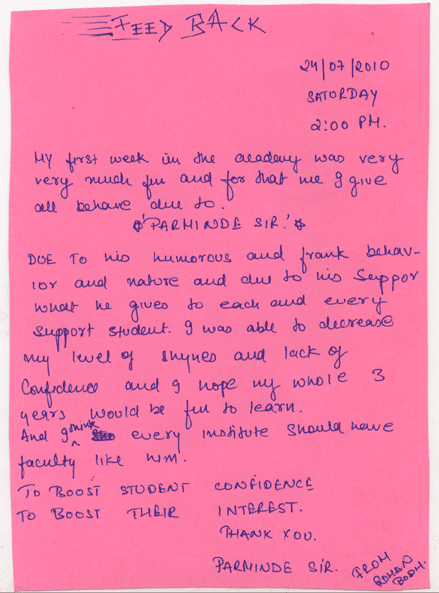 FEED BACK
24/07/2010
SATURDAY
2:00 PM.
My first week in the academy was very
very much fun and for that me I give
all behave due to.
"PARMINDE SIR."
DUE TO his humorous and frank behav-
ior and nature and due to his Suppor
what he gives to each and every
support student. I was able to decrease
my level of shynes and lack of
Confidence and I hope my whole 3
years would be fun to learn.
And I think every institute should have
faculty like him.
TO BOOST STUDENT CONFIDENCE
TO BOOST THEIR INTEREST.
THANK YOU.
PARMINDE SIR.
FROM
ROHAN
BODH.